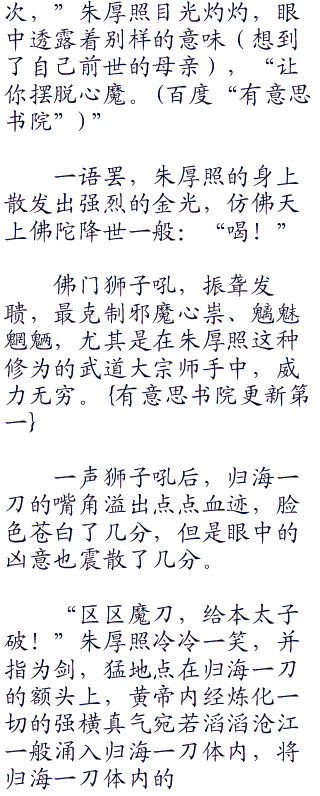 次，”朱厚照目光灼灼，眼
中透露着别样的意味（想到
了自己前世的母亲），“让
你摆脱心魔。(百度“有意思
书院”)”
一语罢，朱厚照的身上
散发出强烈的金光，仿佛天
上佛陀降世一般：“喝！”
佛门狮子吼，振聋发
聩，最克制邪魔心祟、魑魅
魍魉，尤其是在朱厚照这种
修为的武道大宗师手中，威
力无穷。{有意思书院更新第
一}
一声狮子吼后，归海一
刀的嘴角溢出点点血迹，脸
色苍白了几分，但是眼中的
凶意也震散了几分。
“区区魔刀，给本太子
破！”朱厚照冷冷一笑，并
指为剑，猛地点在归海一刀
的额头上，黄帝内经炼化一
切的强横真气宛若滔滔沧江
一般涌入归海一刀体内，将
归海一刀体内的